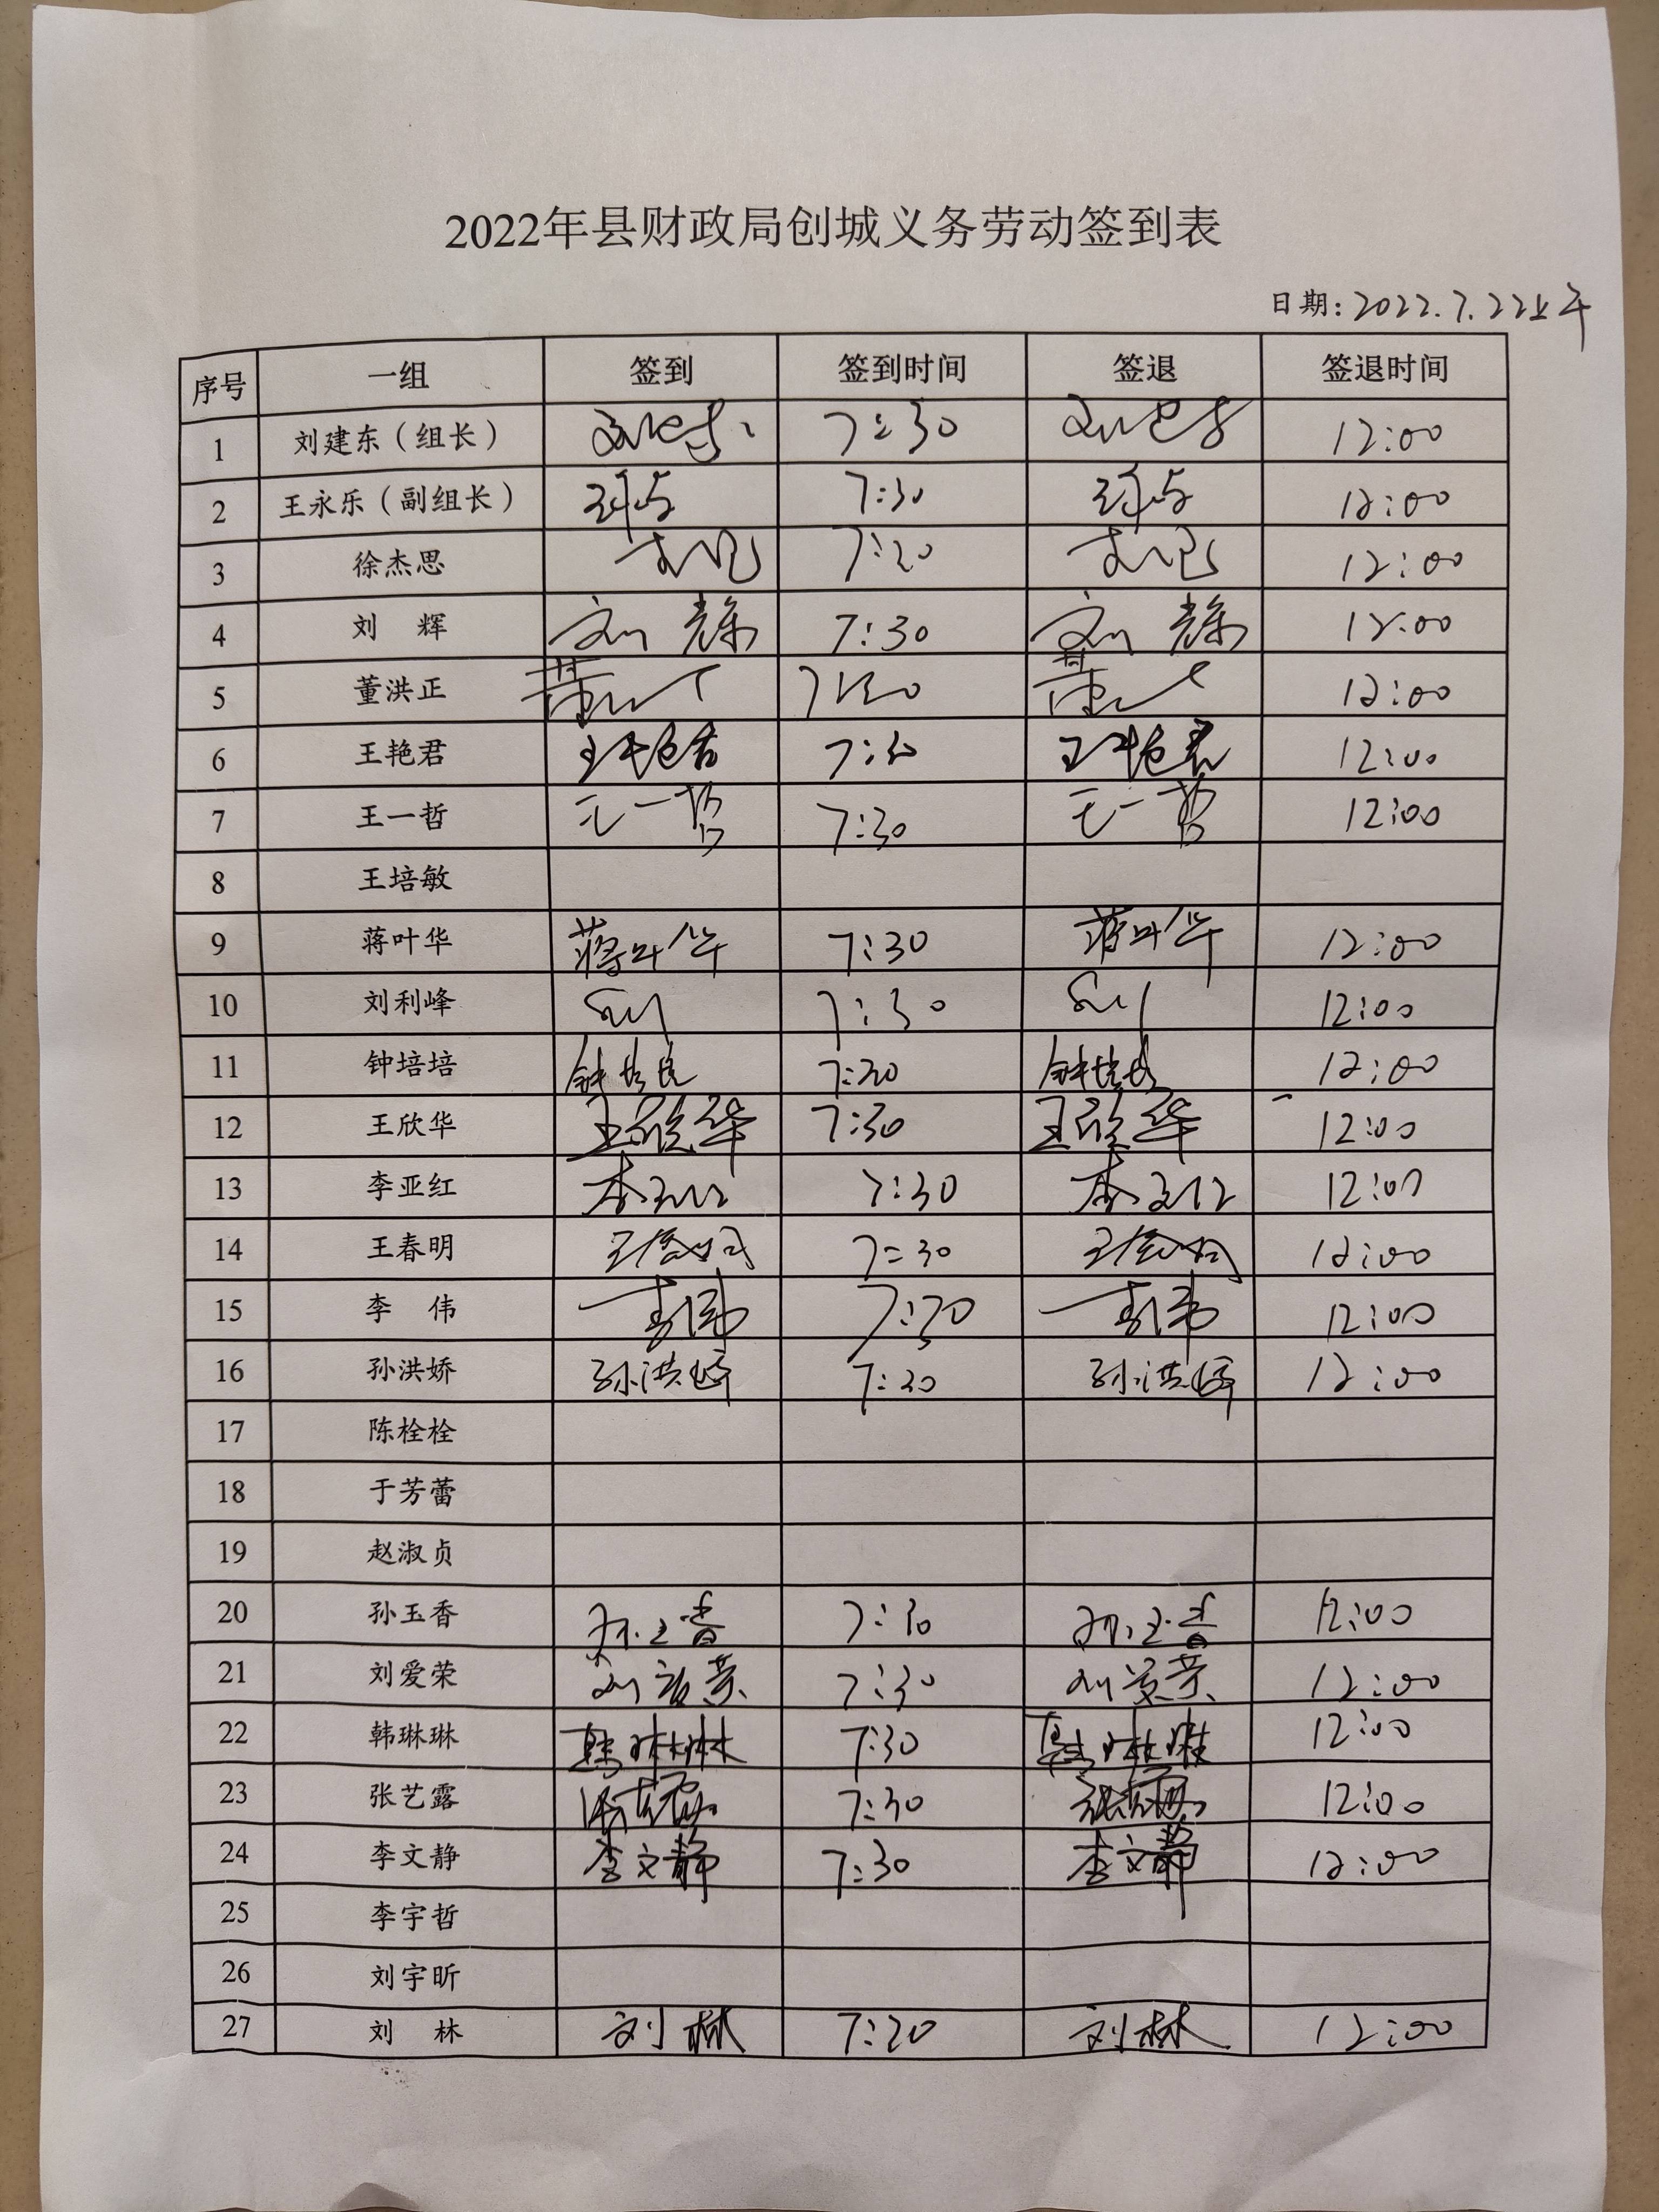 2022年县财政局创城义务劳动签到表
日期: 2022.7.22上午
序号 一组 签到 签到时间 签退 签退时间
1 刘建东（组长） 7:30 12:00
2 王永乐（副组长） 7:30 12:00
3 徐杰思 7:20 12:00
4 刘 辉 刘 辉 7:30 刘 辉 12:00
5 董洪正 12:00
6 王艳君 王艳君 7:30 王艳君 12:00
7 王一哲 王一哲 7:30 王一哲 12:00
8 王培敏
9 蒋叶华 蒋叶华 7:30 蒋叶华 12:00
10 刘利峰 7:30 12:00
11 钟培培 钟培培 7:20 钟培培 12:00
12 王欣华 王欣华 7:30 王欣华 12:00
13 李亚红 李亚红 7:30 李亚红 12:00
14 王春明 王春明 7:30 王春明 12:00
15 李 伟 李伟 李伟 12:00
16 孙洪娇 孙洪娇 7:20 孙洪娇 12:00
17 陈栓栓
18 于芳蕾
19 赵淑贞
20 孙玉香 孙玉香 7:30 孙玉香 12:00
21 刘爱荣 刘爱荣 7:30 刘爱荣 12:00
22 韩琳琳 韩琳琳 7:30 韩琳琳 12:00
23 张艺露 张艺露 7:30 张艺露 12:00
24 李文静 李文静 7:30 李文静 12:00
25 李宇哲
26 刘宇昕
27 刘 林 刘林 7:20 刘林 12:00